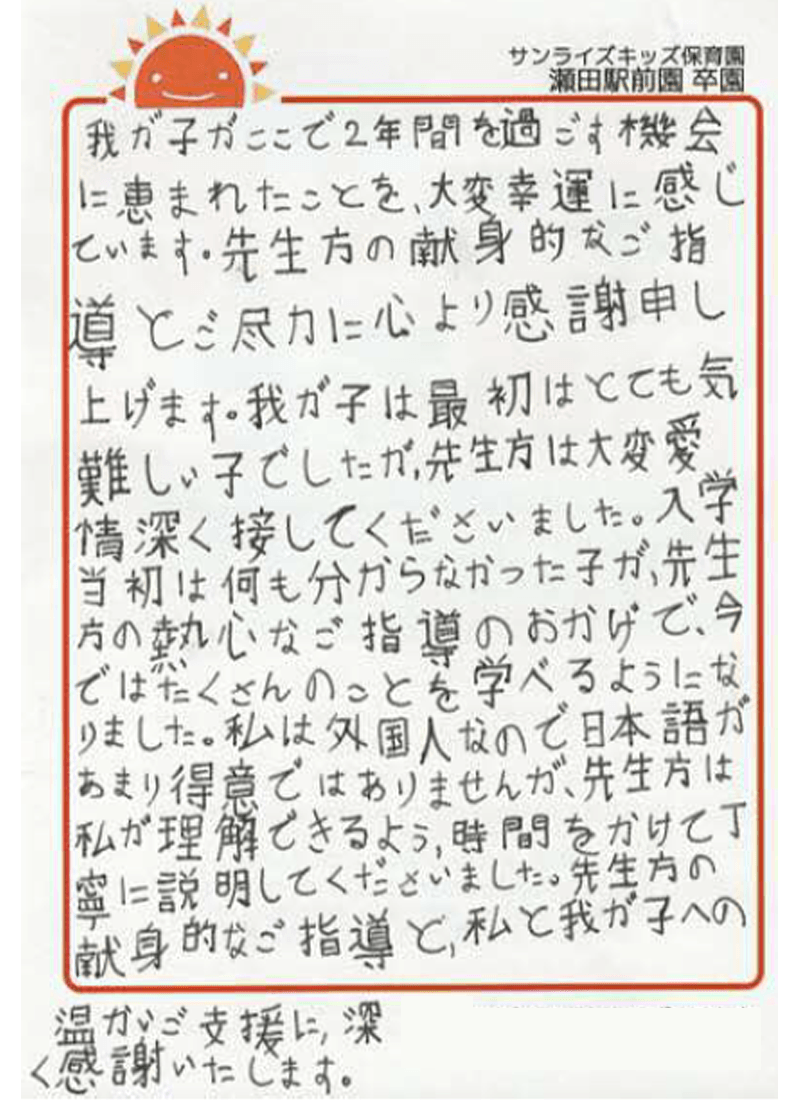 サンライズキッズ保育園
瀬田駅前園 卒園
我が子がここで2年間を過ごす機会
に恵まれたことを、大変幸運に感じ
ています。先生方の献身的なご指
導とご尽力に心より感謝申し
上げます。我が子は最初はとても気
難しい子でしたが、先生方は大変愛
情深く接してくださいました。入学
当初は何も分からなかった子が、先生
方の熱心なご指導のおかげで、今
ではたくさんのことを学べるようにな
りました。私は外国人なので日本語が
あまり得意ではありませんが、先生方は
私が理解できるよう、時間をかけて丁
寧に説明してくださいました。先生方の
献身的なご指導と、私と我が子への
温かいご支援に、深
く感謝いたします。